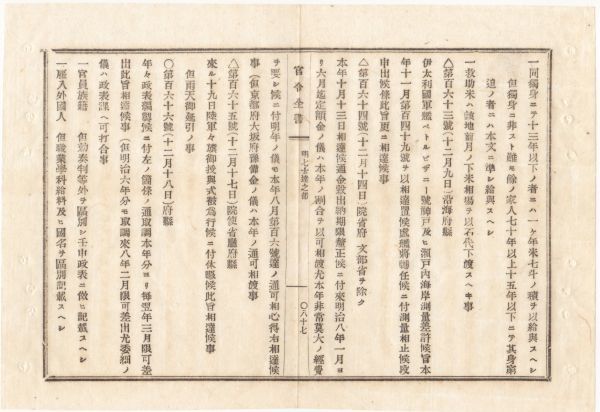 一同獨身ニテ十三年以下ノ者ニハ一ケ年米七斗ノ積ヲ以給與スヘシ
但獨身ニ非スト雖モ餘ノ家人七十年以上十五年以下ニテ其身窮
迫ノ者ニハ本文ニ準シ給與スヘシ
一救助米ハ該地前月ノ下米相塲ヲ以石代下渡スヘキ事
△第百六十三號(十二月九日)沿海府縣
伊太利國軍艦ベトルビザニー號神戸及ヒ瀬戸内海岸測量差許候旨本
年十一月第百四十九號ヲ以相達置候處艦將轉任候ニ付測量相止候段
申出候條此旨更ニ相達候事
△第百六十四號(十二月十四日)院省府 文部省ヲ除ク
本年十月十三日相達候通金穀出納期限釐正候ニ付來明治八年一月ヨ
リ六月迄定額金ノ儀ハ本年ノ割合ヲ以可相渡尤本年非常莫大ノ經費
官令全書
明七太達之部
〇八十七
ヲ要シ候ニ付明年ノ儀モ本年八月第百六號達ノ通可相心得右相達候
事(但京都府大坂府豫備金ノ儀ハ本年ノ通可相渡事
△第百六十五號(十二月十七日)院使省廳府縣
來ル十九日陸軍々旗御授與式被爲行候ニ付休暇候此旨相達候事
但雨天御延引ノ事
〇第百六十六號(十二月十八日)府縣
年々政表編製候ニ付左ノ箇條ノ通取調本年分ヨリ毎翌年三月限可差
出此旨相達候事(但明治六年分モ取調來八年二月限可差出尤委細ノ
儀ハ政表課ヘ可打合事
一官員族籍 但勅奏判等外ヲ區別シ壬申政表ニ傚ヒ記載スヘシ
一雇入外國人 但職業學科給料及ヒ國名ヲ區別記載スヘシ